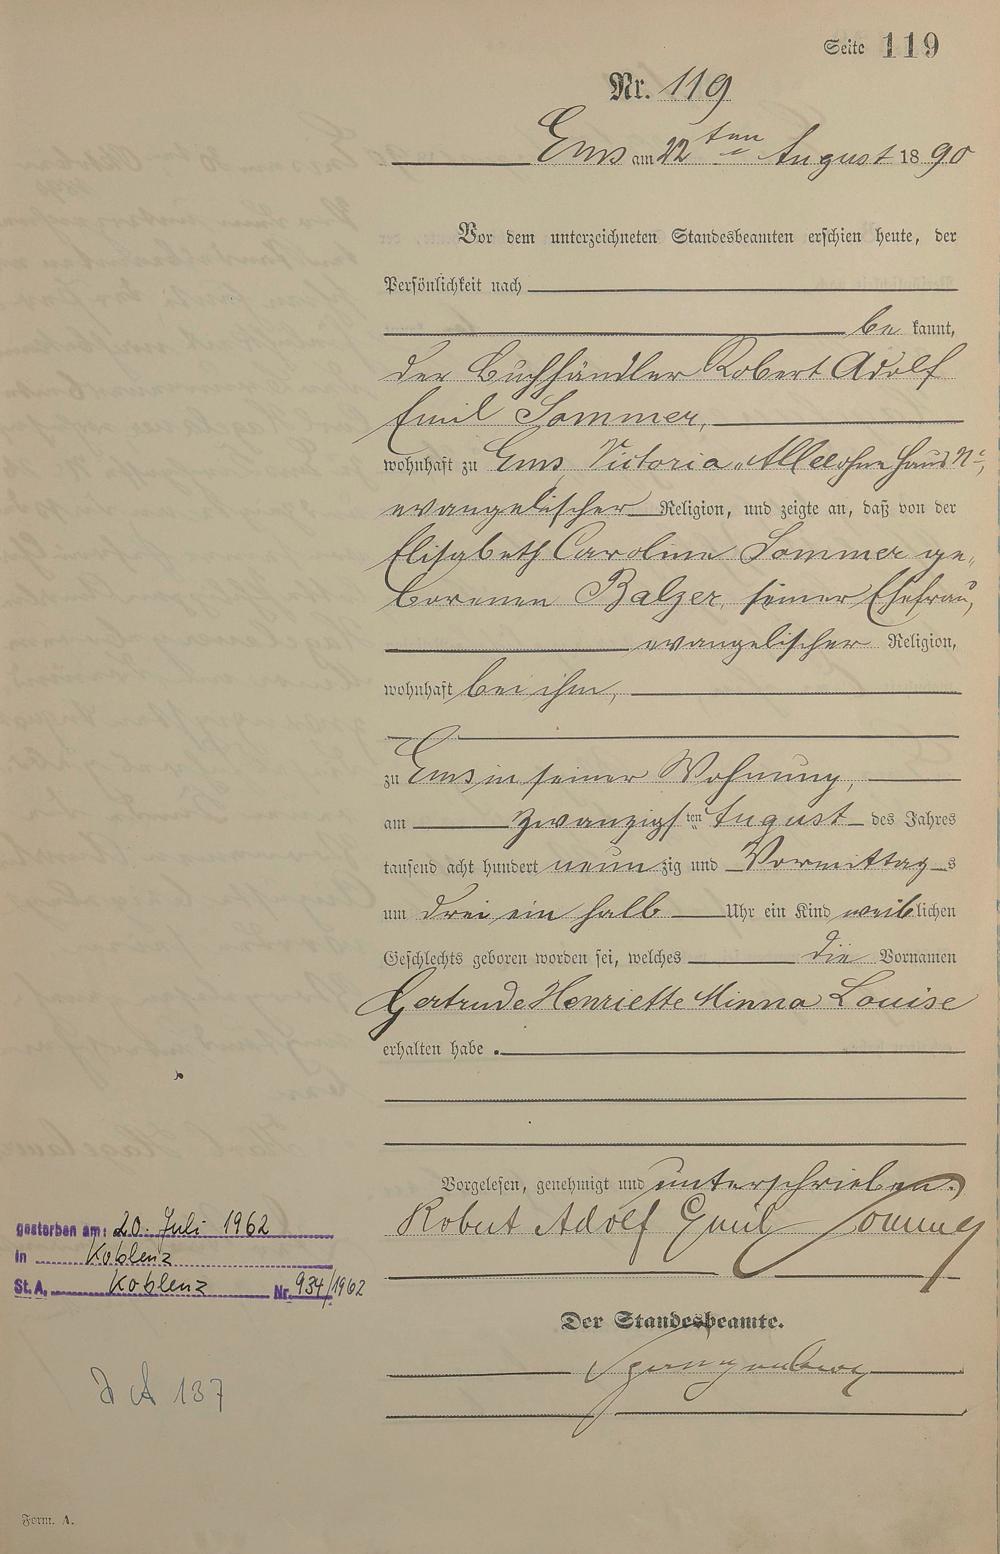 Seite 119
Nr. 119
Ems am 22ten August 1890
Vor dem unterzeichneten Standesbeamten erschien heute, der
Persönlichkeit nach
be kannt,
der Buchhändler Robert Adolf
Emil Sommer,
wohnhaft zu Ems, Victoria-Allee ohne Haus No.,
evangelischer Religion, und zeigte an, daß von der
Elisabeth Caroline Sommer ge-
borenen Balzer, seiner Ehefrau,
evangelischer Religion,
wohnhaft bei ihm,
zu Ems in seiner Wohnung,
am zwanzigsten August des Jahres
tausend acht hundert neunzig und Vormittags
um drei ein halb Uhr ein Kind weiblichen
Geschlechts geboren worden sei, welches die Vornamen
Gertrude Henriette Minna Louise
erhalten habe.
Vorgelesen, genehmigt und unterschrieben.
Robert Adolf Emil Sommer
gestorben am: 20. Juli 1962
in Koblenz
St.A. Koblenz Nr. 934/1962
Der Standesbeamte.
137
Form. A.